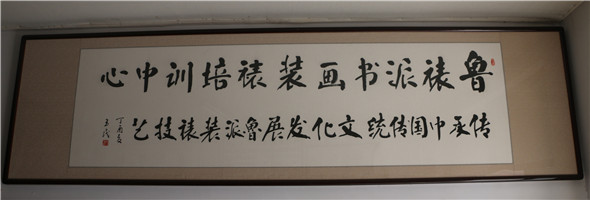 鲁裱派书画装裱培训中心
传承中国传统文化发展鲁派装裱技艺
丁酉